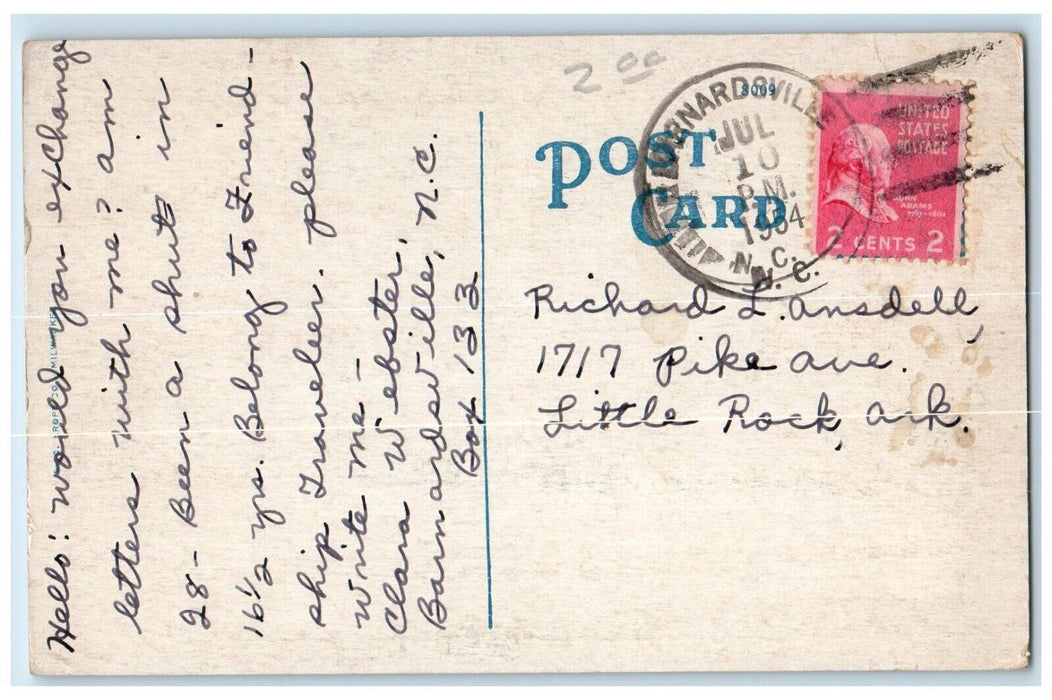 Hello! would you exchange
letters with me? am
28 - Been a shut in
16½ yrs. Belong to Friend-
ship Traveler. please
write me -
Clara Webster,
Barnardsville, N.C.
Box 133
2 00
8009
POST
CARD
JUL
10
P.M.
N.C.
UNITED
STATES
POSTAGE
JOHN
ADAMS
2 CENTS 2
Richard L. Ansdell,
1717 Pike Ave.
Little Rock, Ark.